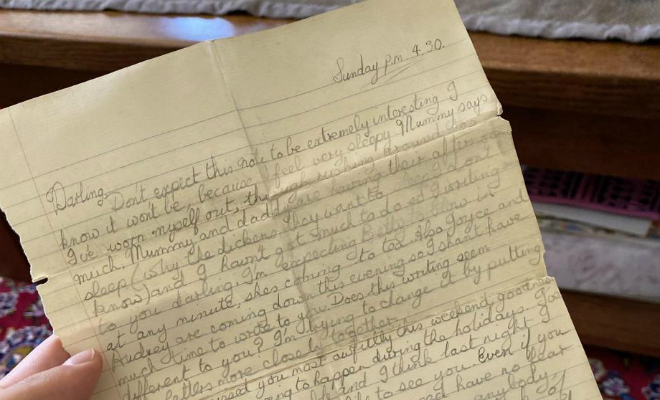 Sunday p.m. 4.30.
Darling, Don't expect this note to be extremely interesting I
know it wont be, because I feel very sleepy Mummy says
I've worn myself out, rushing around too
much. Mummy and dad are having their afternoon
sleep (why the dickens they want to I dont
know) and I havnt got much to do so I writing
to you darling. I'm expecting Betty Brown in
at any minute, shes coming to tea. Also Joyce and
Audrey are coming down this evening so I shant have
much time to write to you. Does this writing seem
different to you? I'm trying to change it by putting
letters more closely together.
missed you most awfully this weekend, goodness
going to happen during the holidays. I
and I think last night I
to see you. Even if you
have no fear
anybody
of